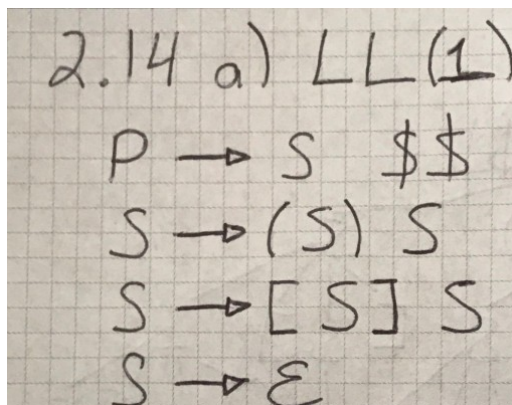 2.14 a) LL(1)
P → S $$
S → (S) S
S → [S] S
S → ε